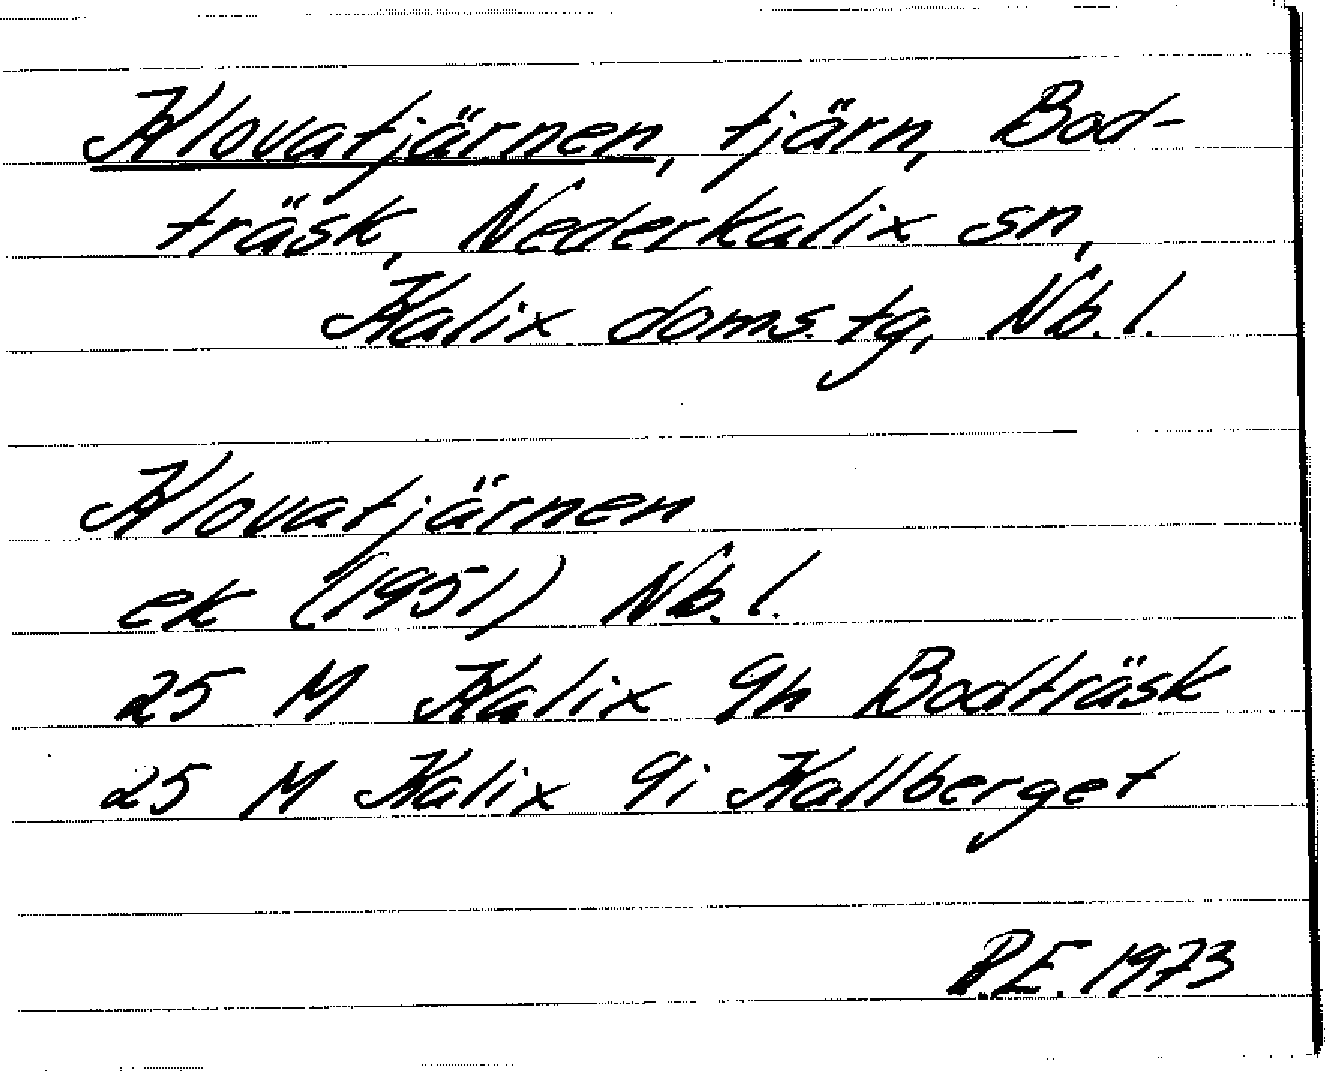 Klovatjärnen, tjärn, Bod-
träsk, Nederkalix sn,
Kalix doms. tg, Nb. l.
Klovatjärnen
ek (1951) Nb. l.
25 M Kalix 9h Bodträsk
25 M Kalix 9i Kallberget
P.E. 1973